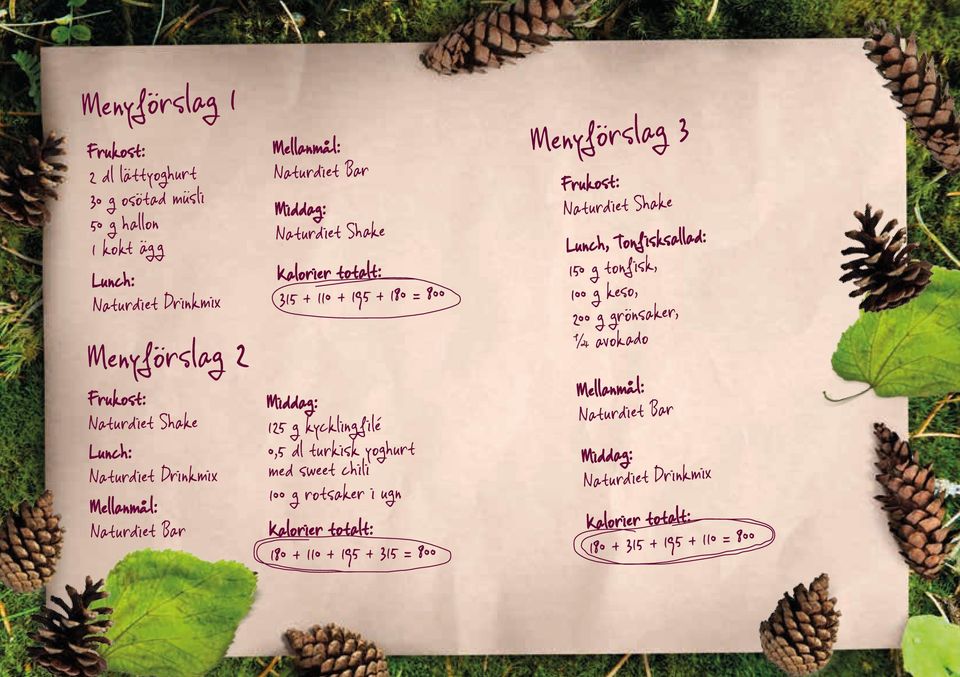 Menyförslag 1
Frukost:
2 dl lättyoghurt
30 g osötad müsli
50 g hallon
1 kokt ägg
Lunch:
Naturdiet Drinkmix
Mellanmål:
Naturdiet Bar
Middag:
Naturdiet Shake
Kalorier totalt:
315 + 110 + 195 + 180 = 800
Menyförslag 2
Frukost:
Naturdiet Shake
Lunch:
Naturdiet Drinkmix
Mellanmål:
Naturdiet Bar
Middag:
125 g kycklingfilé
0,5 dl turkisk yoghurt
med sweet chili
100 g rotsaker i ugn
Kalorier totalt:
180 + 110 + 195 + 315 = 800
Menyförslag 3
Frukost:
Naturdiet Shake
Lunch, Tonfisksallad:
150 g tonfisk,
100 g keso,
200 g grönsaker,
1/4 avokado
Mellanmål:
Naturdiet Bar
Middag:
Naturdiet Drinkmix
Kalorier totalt:
180 + 315 + 195 + 110 = 800